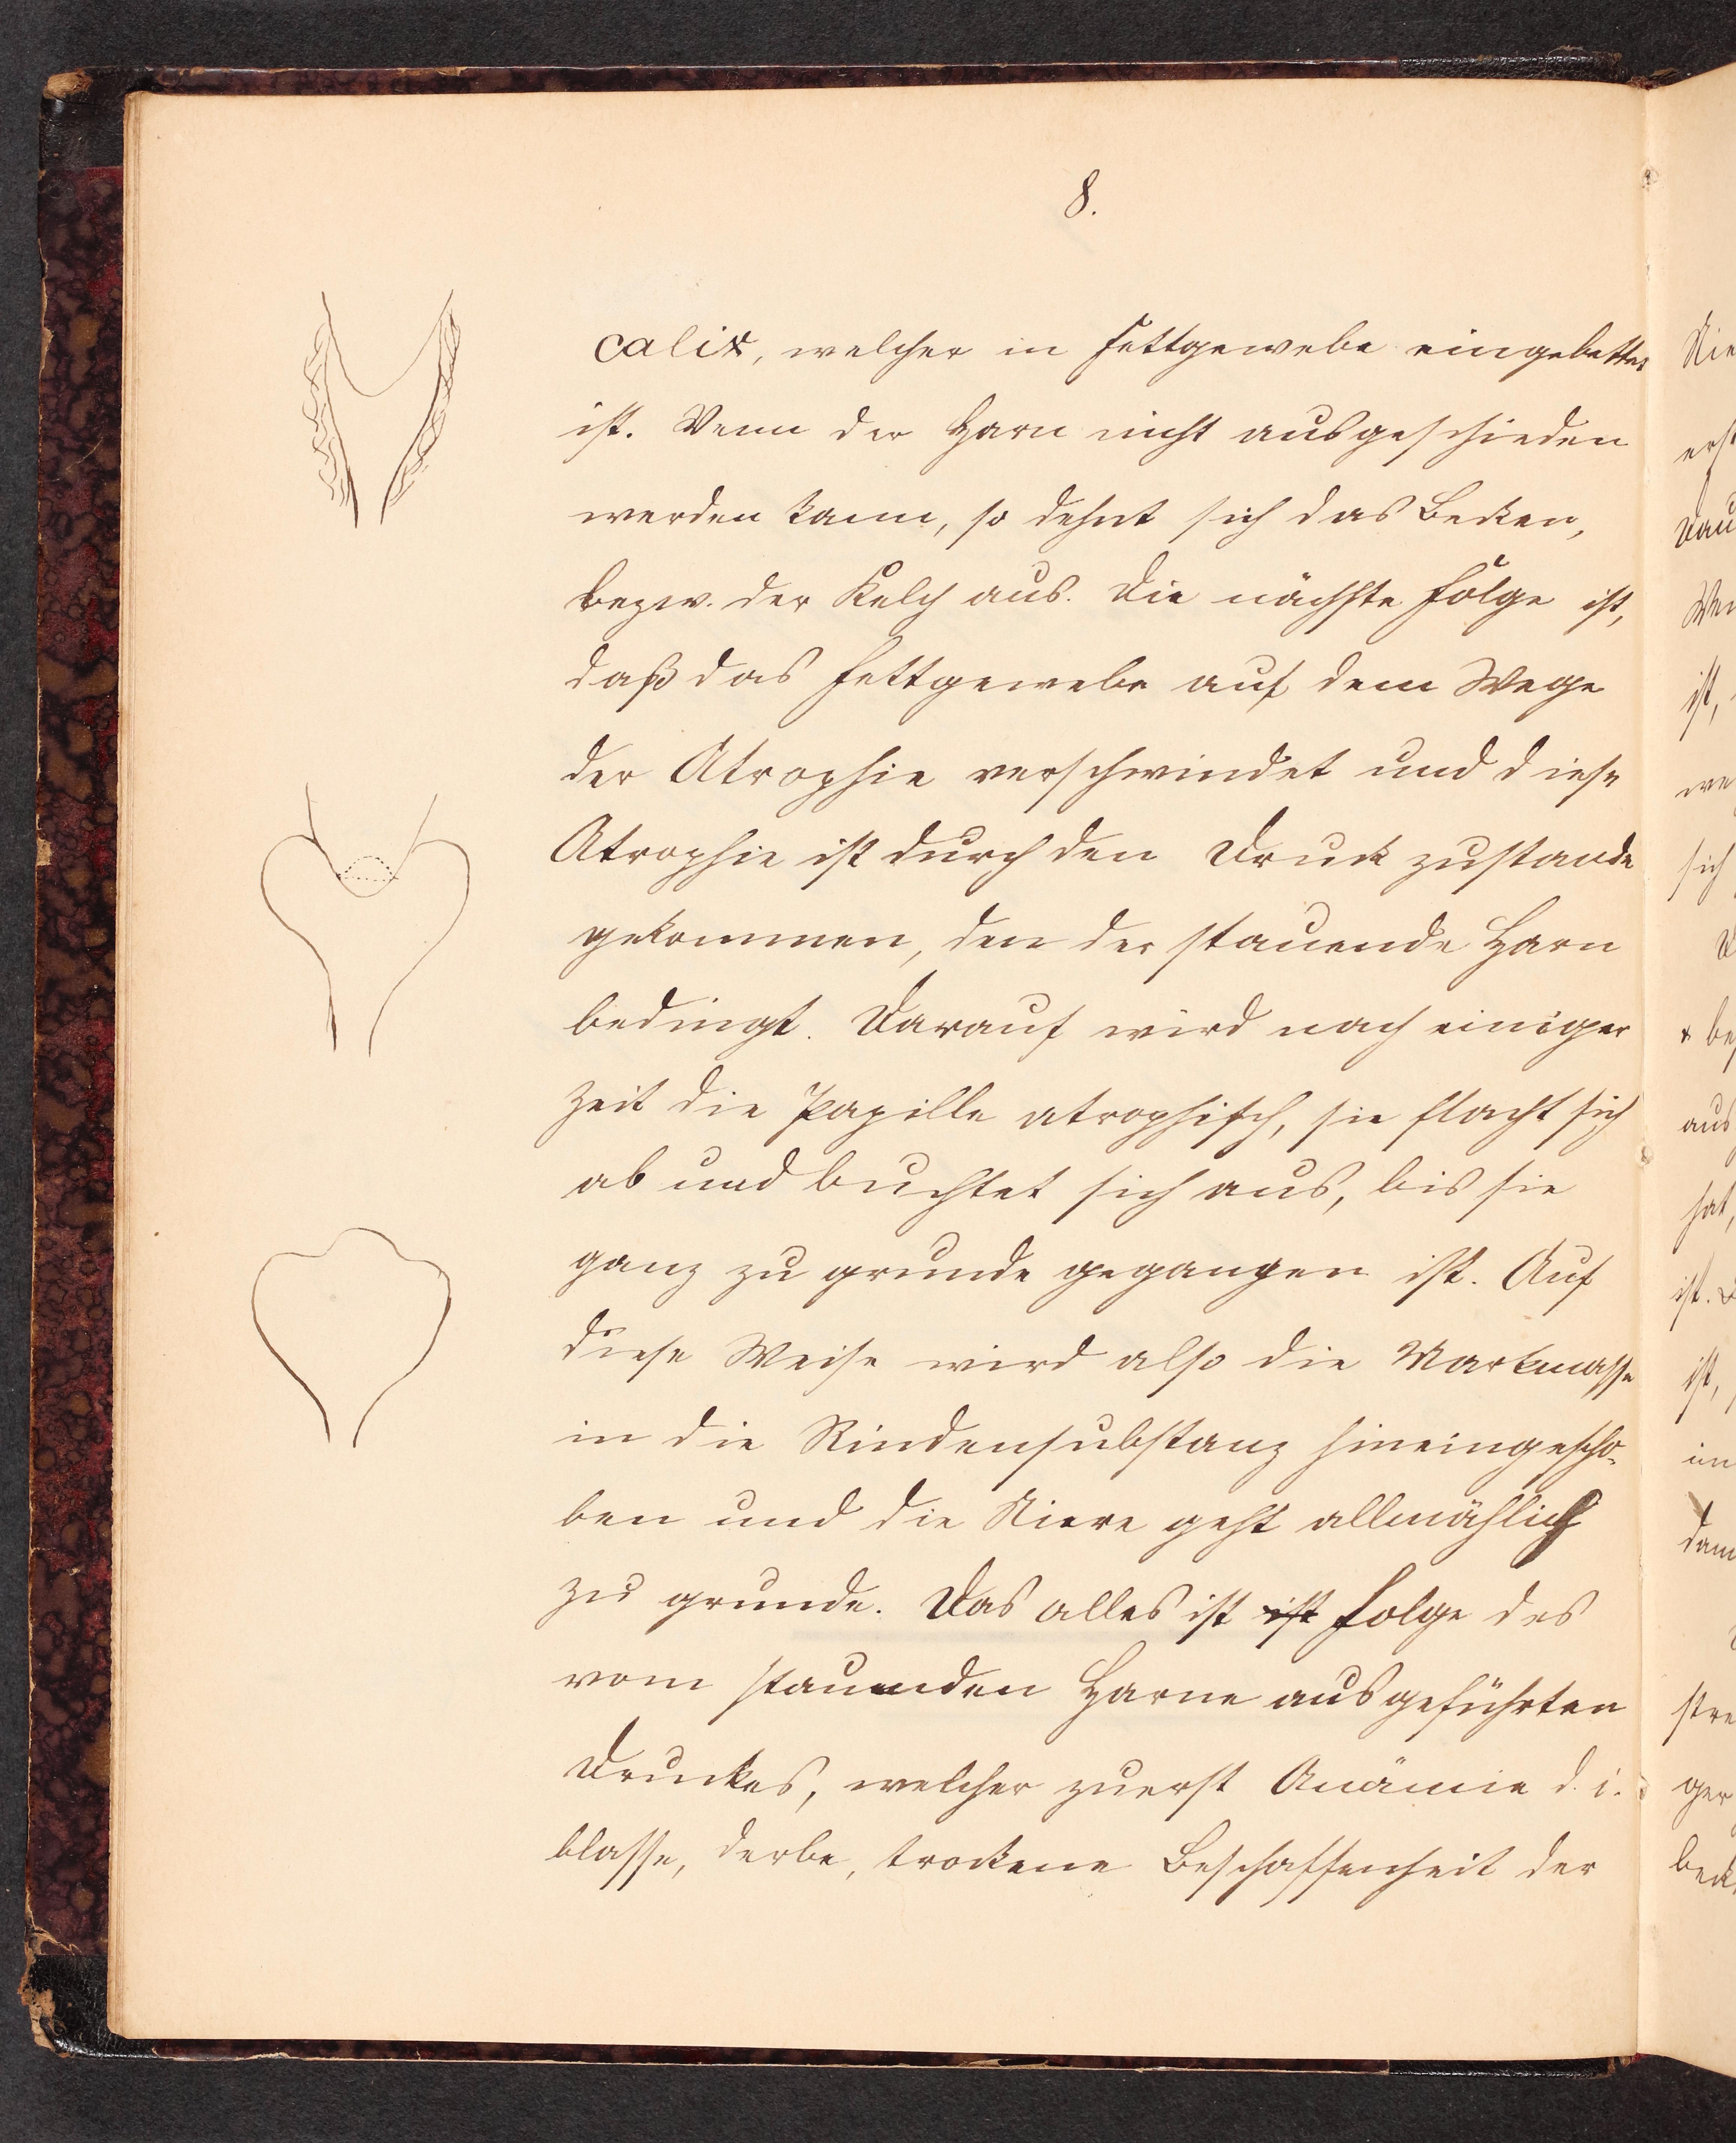 8.
calix, welcher in Fettgewebe eingebettet
ist. Wenn der Harn nicht ausgeschieden
werden kann, so dehnt sich das Becken,
bezw. der Kelch aus. Die nächste Folge ist,
daß das Fettgewebe auf dem Wege
der Atrophie verschwindet und diese
Atrophie ist durch den Druck zustande
gekommen, den der stauende Harn
bedingt. Darauf wird nach einiger
Zeit die Papille atrophisch, sie flacht sich
ab und buchtet sich aus, bis sie
ganz zu grunde gegangen ist. Auf
diese Weise wird also die Markmasse
in die Rindensubstanz hineingescho-
ben und die Niere geht allmählich
zu grunde. Das alles ist ist Folge des
vom stauenden Harne ausgeführten
Druckes, welcher zuerst Anämie d. i.
blasse, derbe, trockene Beschaffenheit der